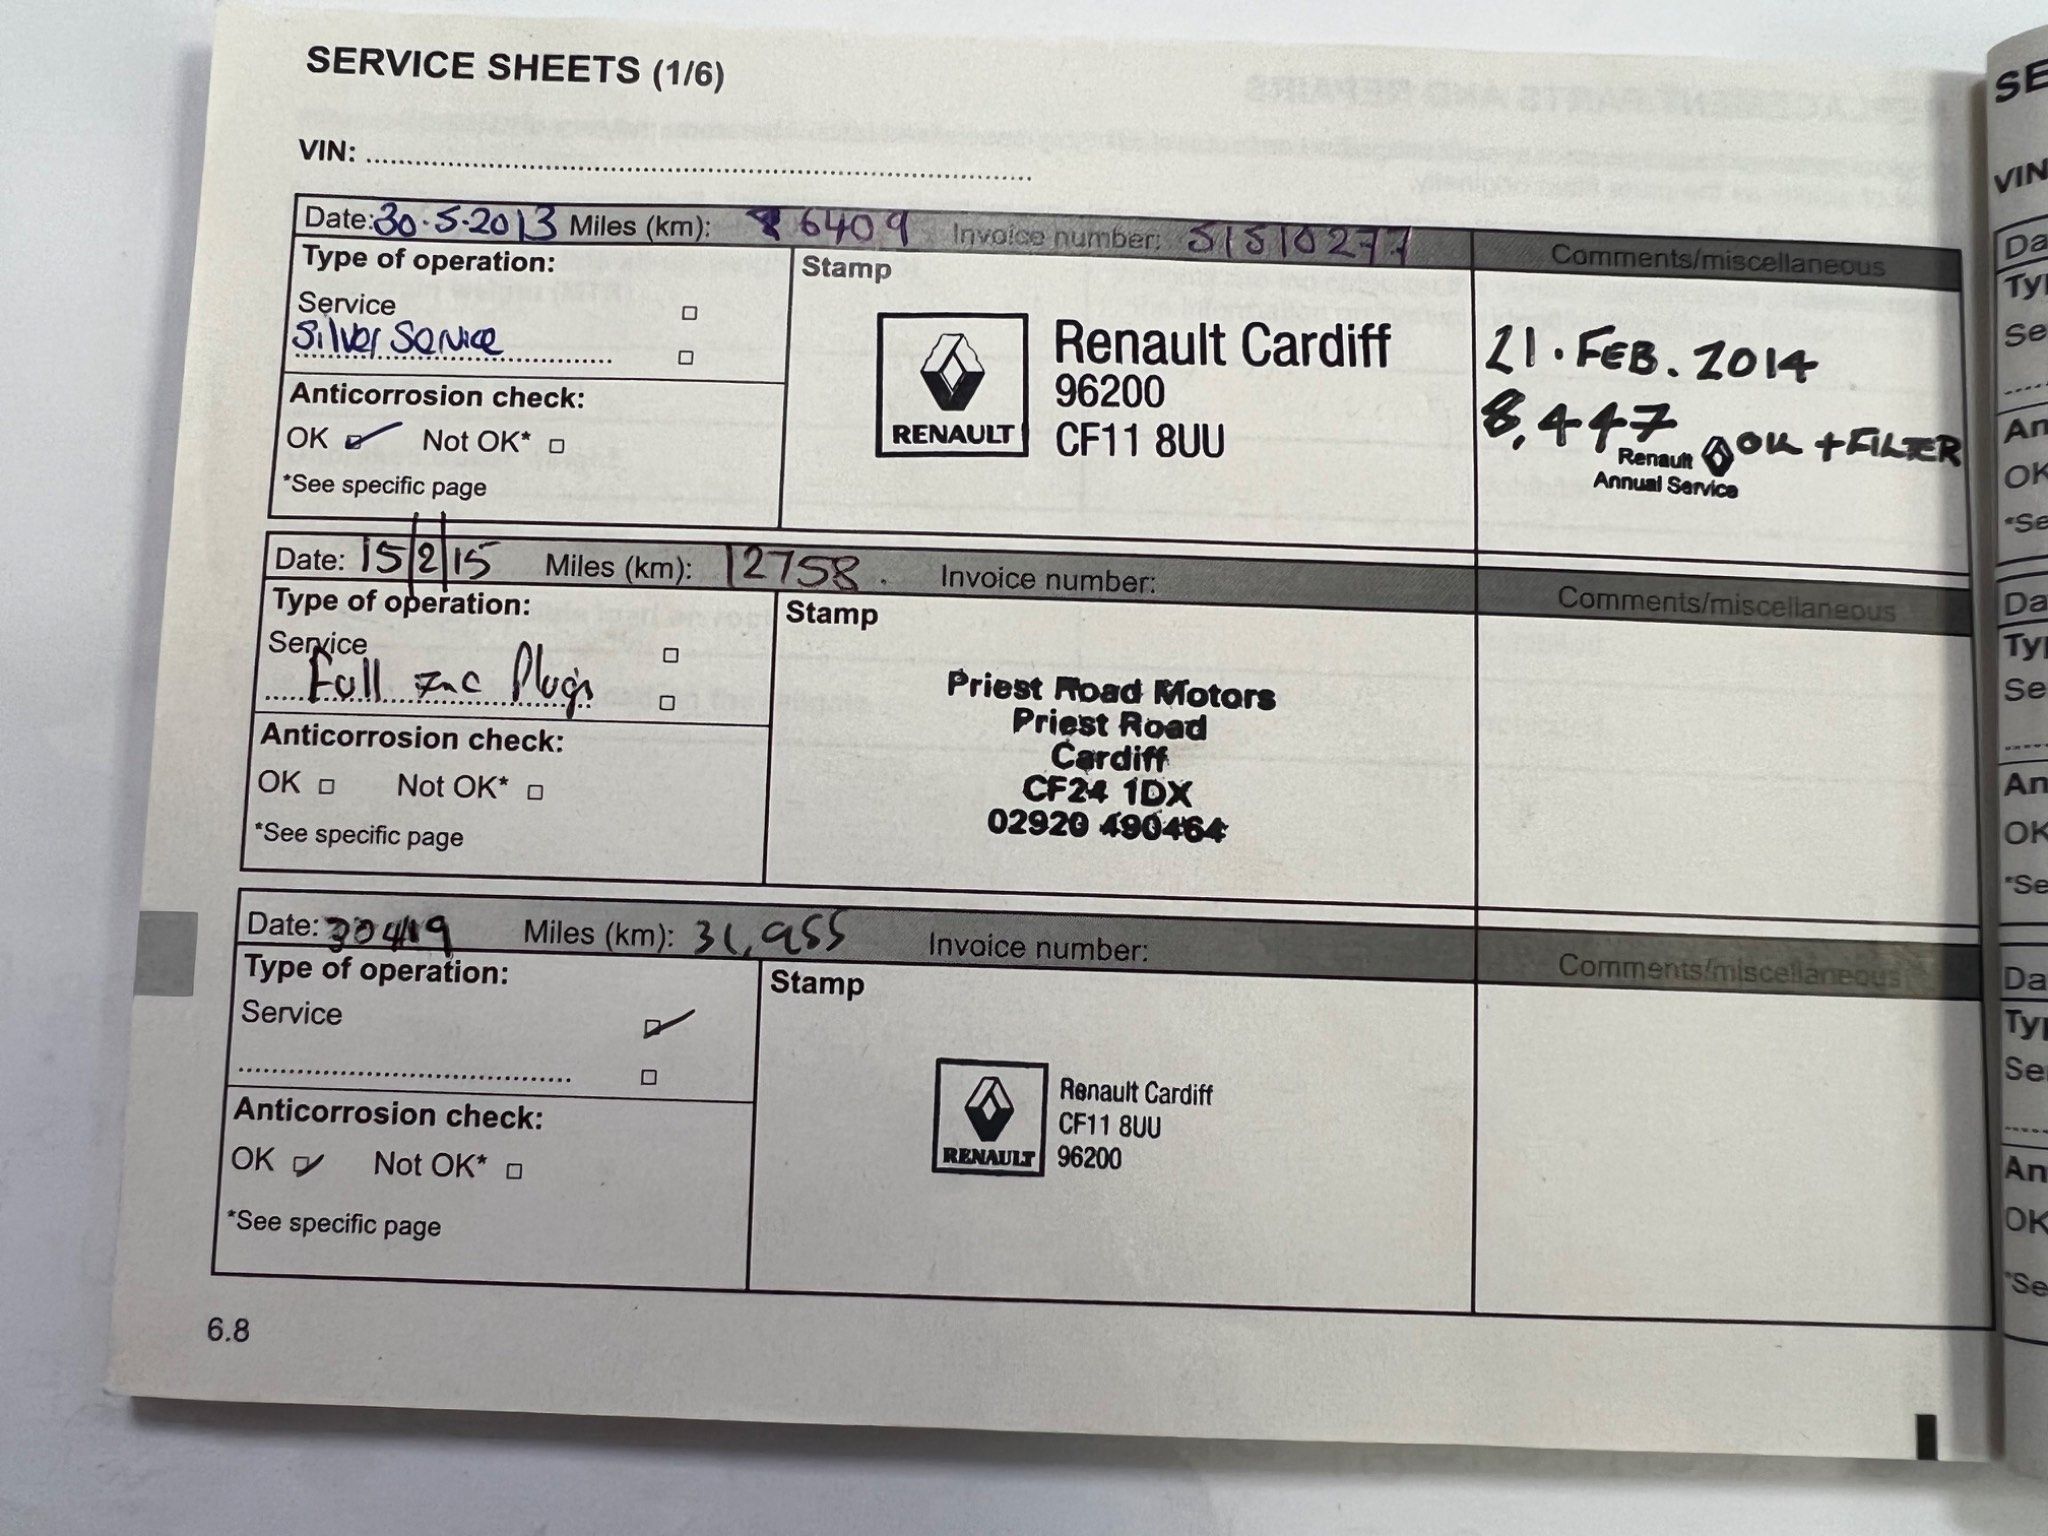 SERVICE SHEETS (1/6)
VIN:
Date: 30·5·2013 Miles (km): 6409 Invoice number: 51510277
Comments/miscellaneous
Type of operation:
Service
Silver Service
Anticorrosion check:
OK Not OK*
*See specific page
Stamp
RENAULT
Renault Cardiff
96200
CF11 8UU
21·FEB.2014
8,447
OK +FILTER
Renault
Annual Service
Date: 15/2/15 Miles (km): 12758. Invoice number:
Comments/miscellaneous
Type of operation:
Service
Full Inc Plugs
Anticorrosion check:
OK Not OK*
*See specific page
Stamp
Priest Road Motors
Priest Road
Cardiff
CF24 1DX
02920 490464
Date: Miles (km): 31,955 Invoice number:
Comments/miscellaneous
Type of operation:
Service
Anticorrosion check:
OK Not OK*
*See specific page
Stamp
RENAULT
Renault Cardiff
CF11 8UU
96200
6.8
SE
VIN
Da
Ty
Se
An
OK
*Se
Da
Ty
Se
An
OK
*Se
Da
Ty
Se
An
OK
*Se